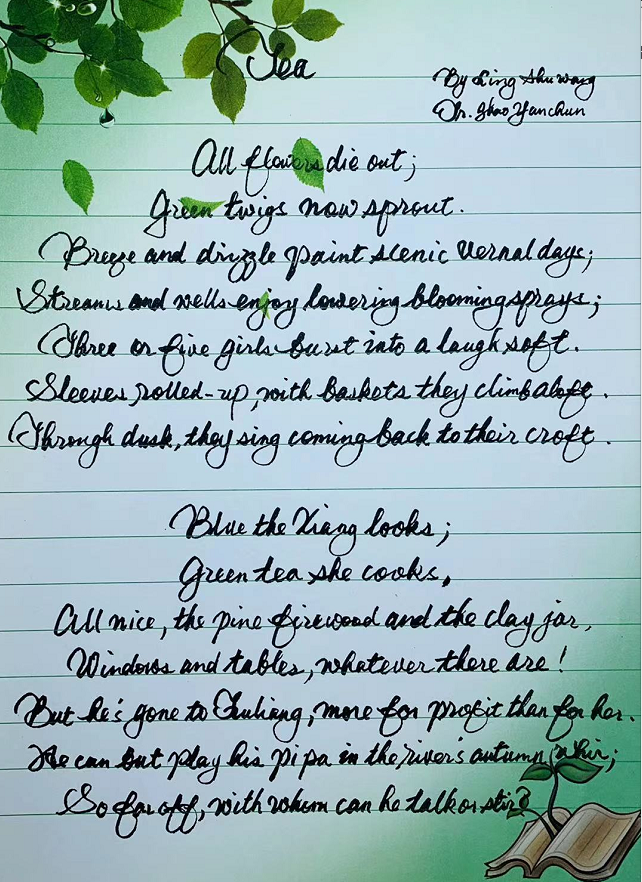 Tea
By Ling Shuwang
Tr. Zhao Yanchun
All flowers die out;
Green twigs now sprout.
Breeze and drizzle paint scenic vernal days;
Streams and wells enjoy lowering blooming sprays;
Three or five girls burst into a laugh soft.
Sleeves rolled-up, with baskets they climb aloft.
Through dusk, they sing coming back to their croft.
Blue the Xiang looks;
Green tea she cooks,
All nice, the pine firewood and the clay jar,
Windows and tables, whatever there are!
But he's gone to Fuliang, more for profit than for her.
He can but play his pipa in the river's autumn whir;
So far off, with whom can he talk or stir?